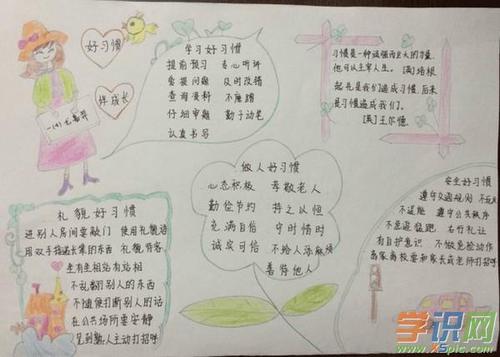 好习惯
伴成长
学习好习惯
提前预习 专心听讲
爱提问题 及时改错
查阅资料 不磨蹭
仔细审题 勤于动笔
认真书写
习惯是一种顽强而巨大的力量,
他可以主宰人生。(英)培根
起先是我们造成习惯,后来
是习惯造成我们。
(英)王尔德
做人好习惯
心态积极 孝敬老人
勤俭节约 持之以恒
充满自信 守时惜时
诚实可信 不给人添麻烦
善待他人
礼貌好习惯
进别人房间要敲门 使用礼貌语
用双手接递长辈的东西 礼貌待客
坐有坐相站有站相
不乱翻别人的东西
不随便打断别人的话
在公共场所要安静
见到熟人主动打招呼
安全好习惯
遵守交通规则 不玩火
不逗能 遵守公共秩序
不急追猛跑 右行礼让
有自护意识 不做危险动作
离家离校要和家长或老师打招呼
学识网
www.XSpic.com